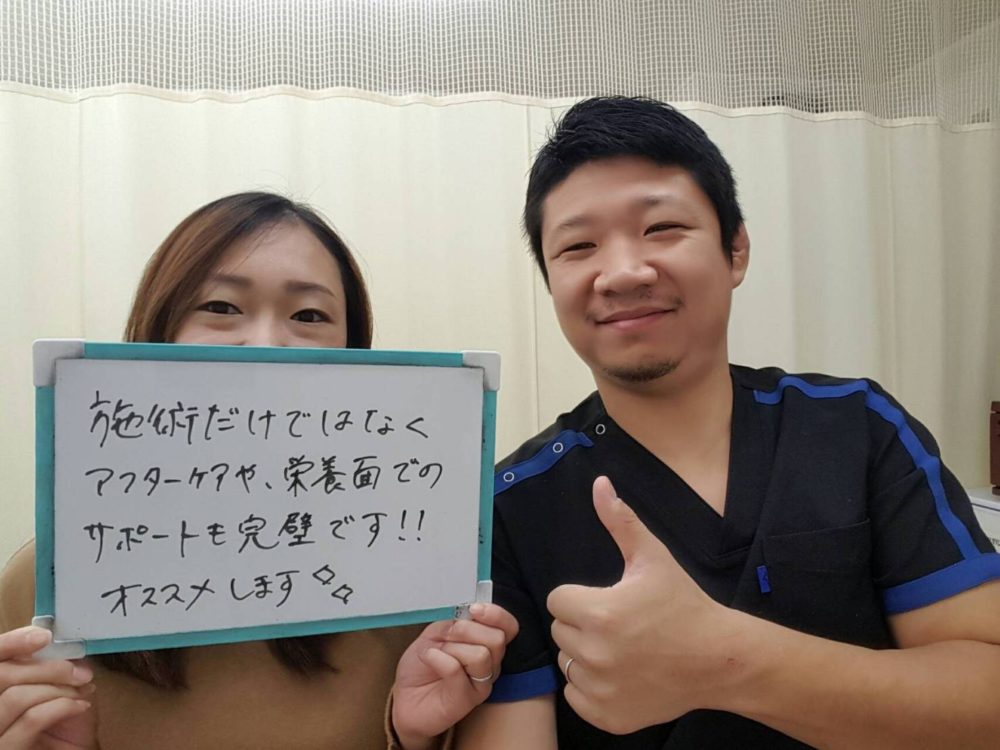 施術だけではなく
アフターケアや、栄養面での
サポートも完璧です!!
オススメします